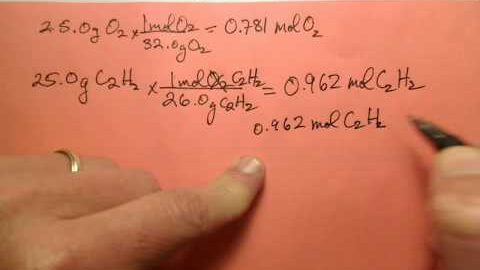 25.0g O₂ × 1molO₂/32.0gO₂ = 0.781 molO₂
25.0g C₂H₂ × 1mol C₂H₂/26.0g C₂H₂ = 0.962 mol C₂H₂
0.962 mol C₂H₂